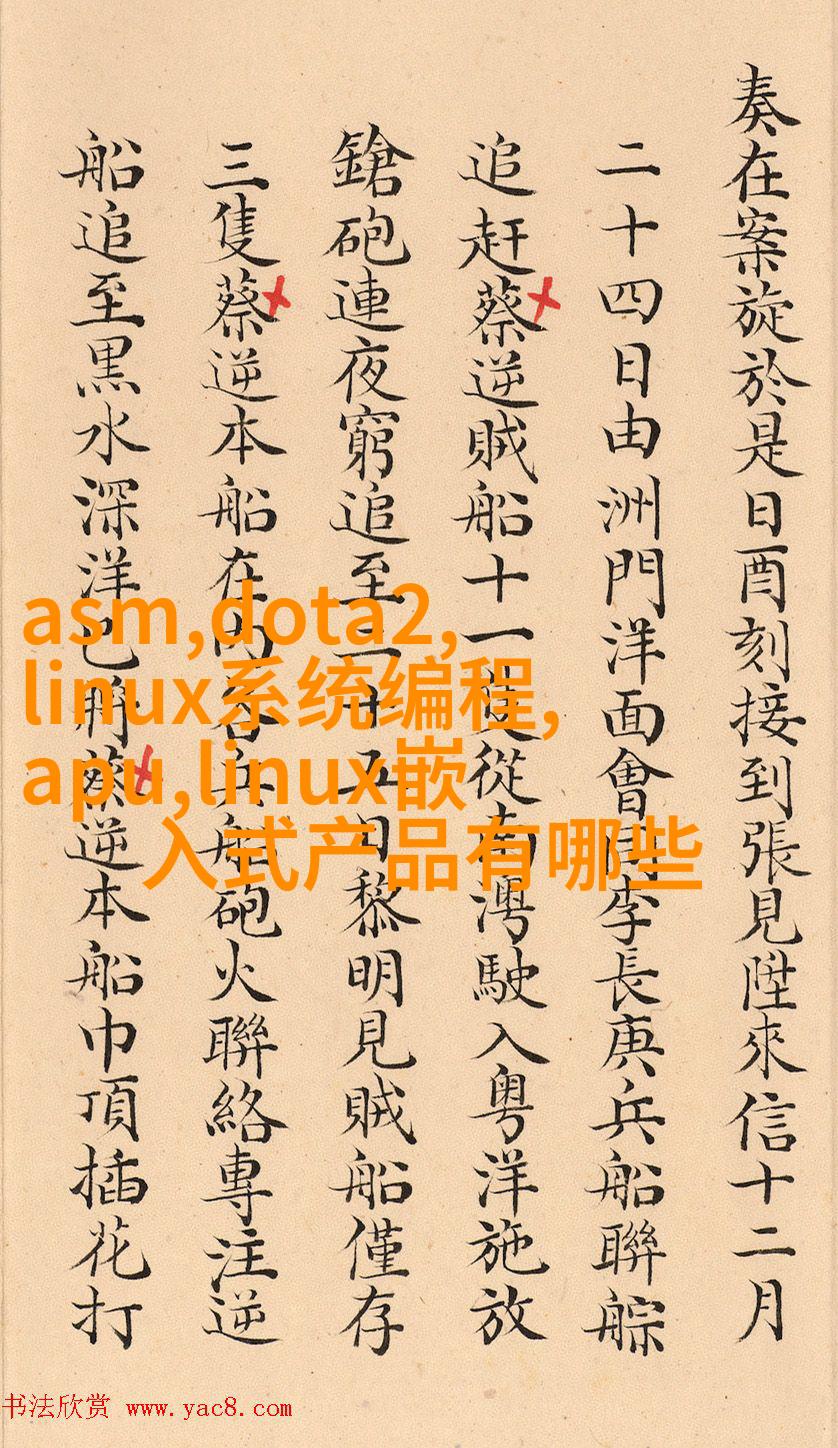 奏在案旋於是日酉刻接到張見陞來信十二月
二十四日由洲門洋面會同李長庚兵船聯䑸
追赶蔡逆賊船十一隻從南灣駛入粤洋施放
鎗砲連夜窮追至二十五日黎明見賊船僅存
三隻蔡逆本船在內各兵船砲火聯絡專注逆
船追至黒水深洋已將蔡逆本船巾頂插花打
asm,dota2,
linux系统编程,
apu,linux嵌
入式产品有哪些
书法欣赏 www.yac8.com